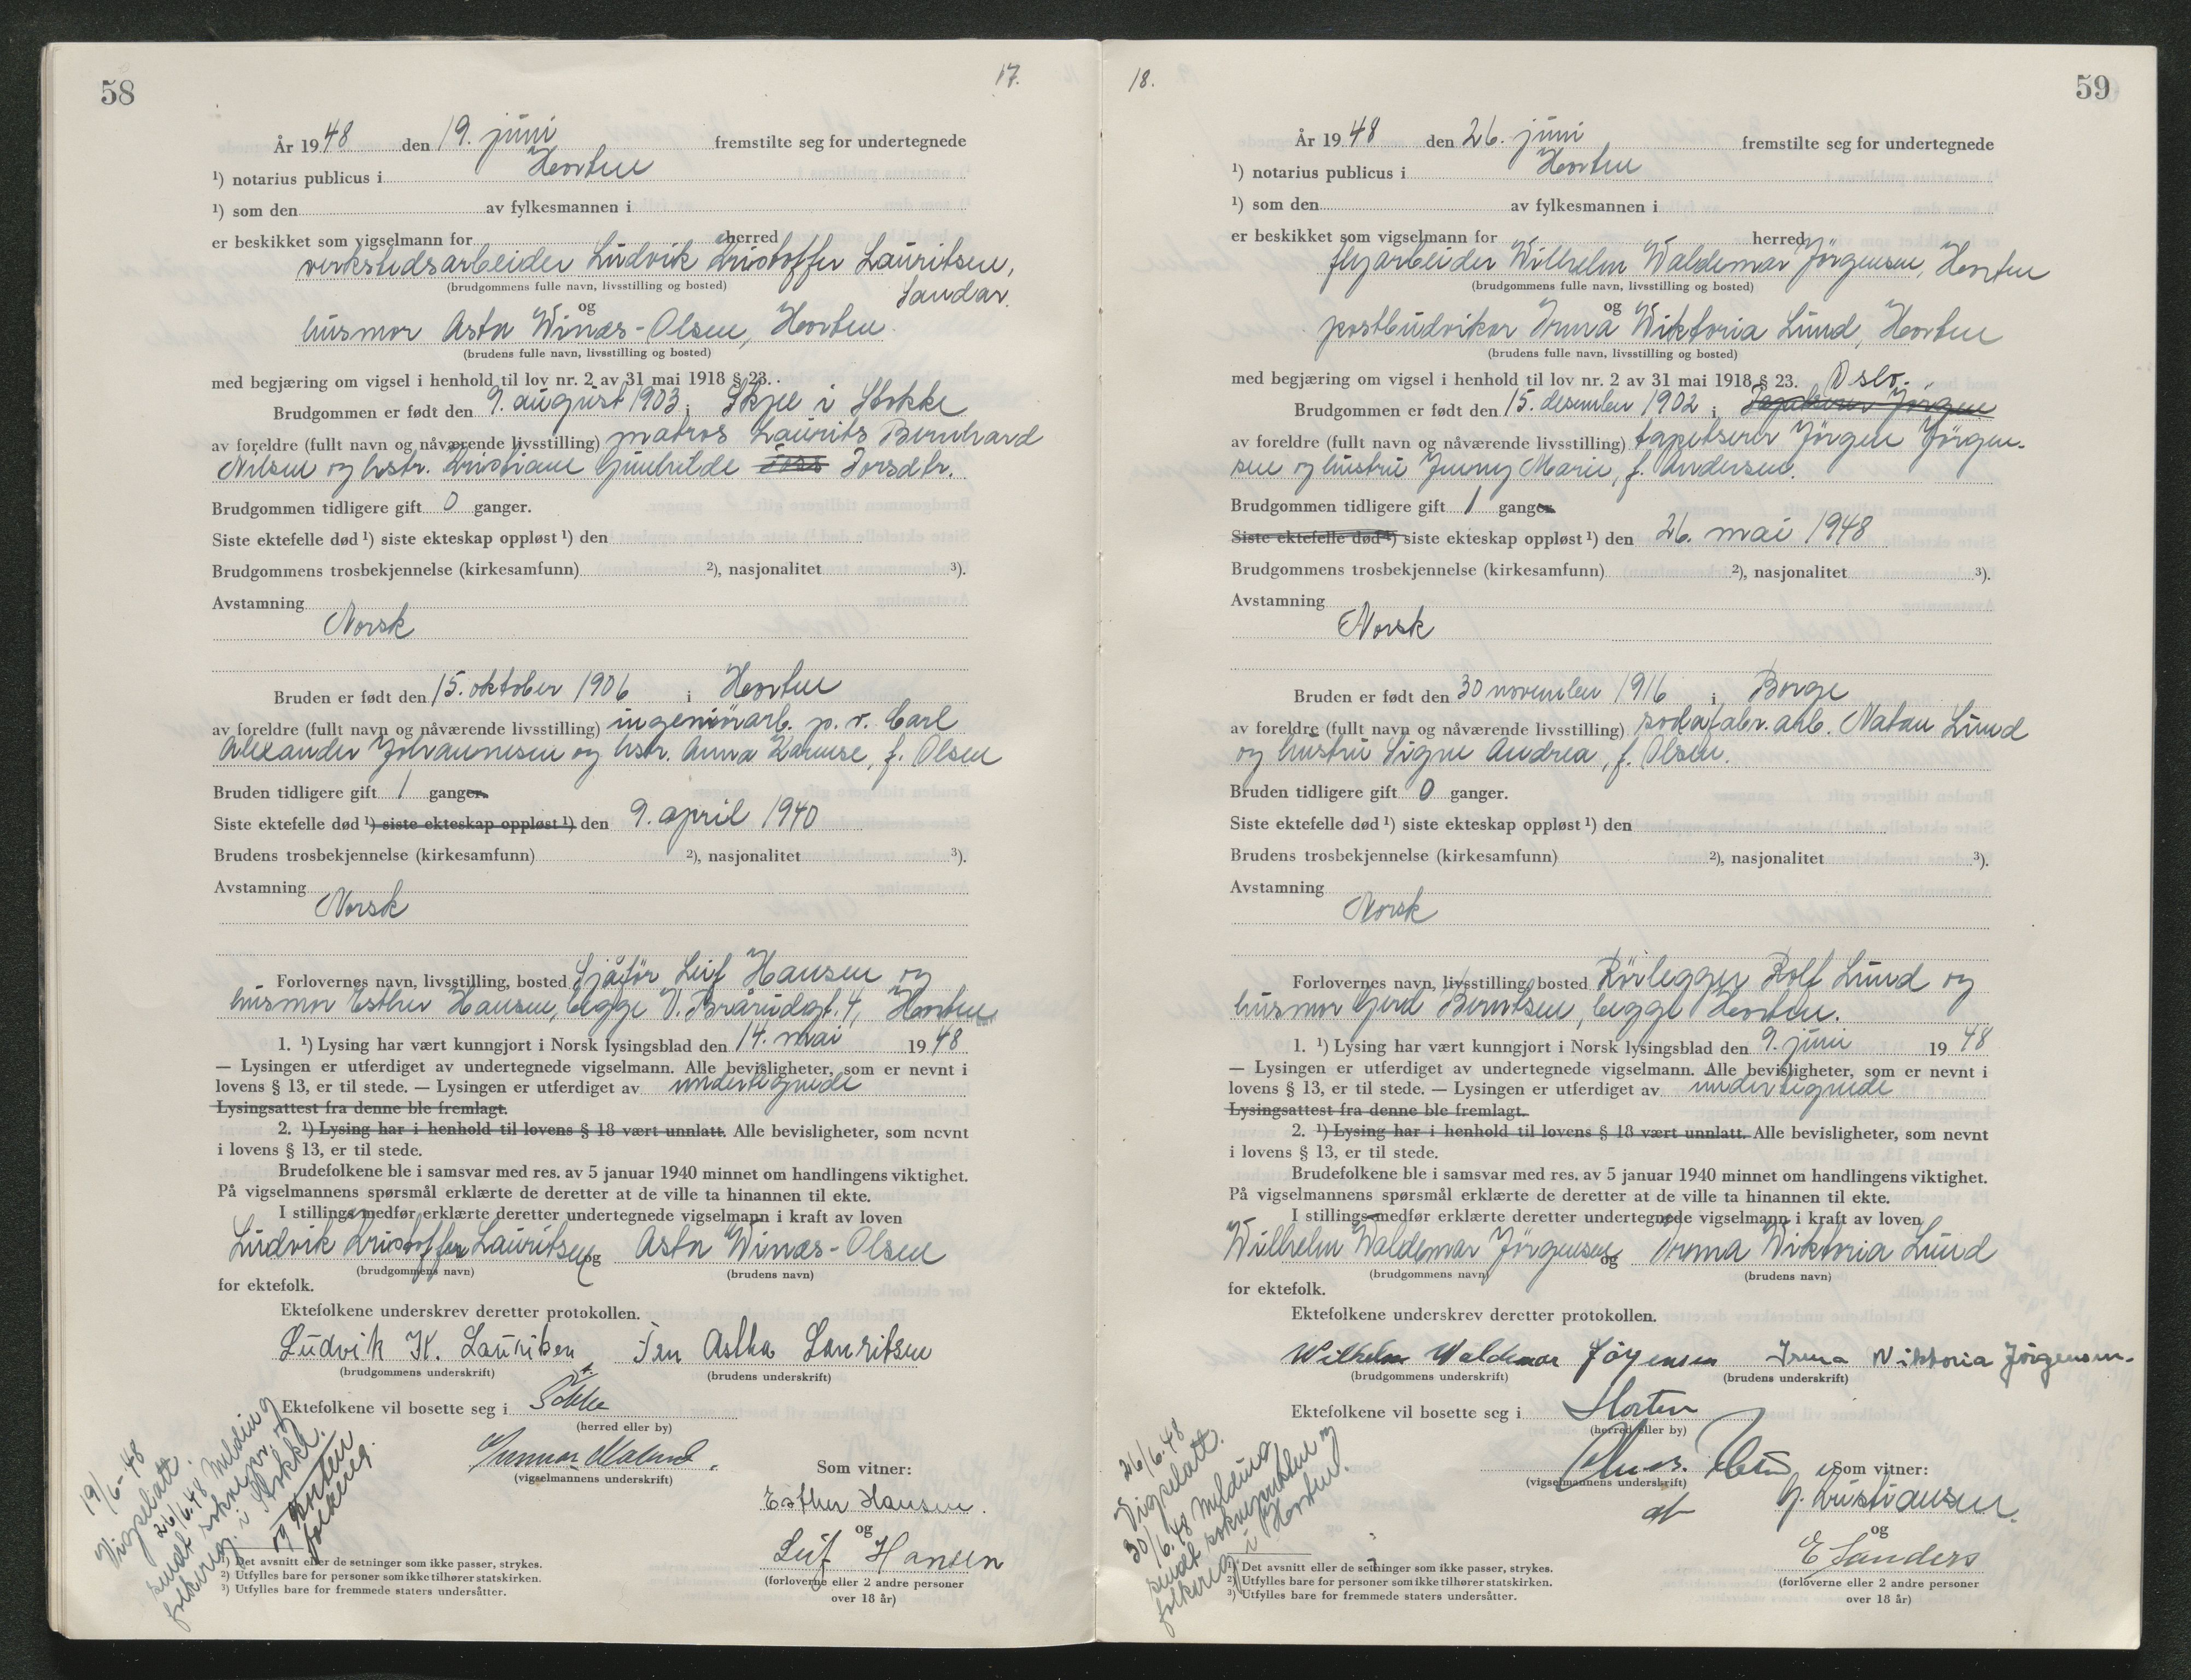 58
17.
År 1948 den 19. juni fremstilte seg for undertegnede
¹) notarius publicus i Horten
¹) som den av fylkesmannen i
er beskikket som vigselmann for herred
verkstedsarbeider Ludvik Kristoffer Lauritsen,
(brudgommens fulle navn, livsstilling og bosted)
Sandar.
og
husmor Asta Winæs-Olsen, Horten
(brudens fulle navn, livsstilling og bosted)
med begjæring om vigsel i henhold til lov nr. 2 av 31 mai 1918 § 23.
Brudgommen er født den 9. august 1903 i Skjee i Stokke
av foreldre (fullt navn og nåværende livsstilling) matros Laurits Bernhard
Nilsen og hstr. Kristiane Gunhilde Torsdtr.
Brudgommen tidligere gift 0 ganger.
Siste ektefelle død ¹) siste ekteskap oppløst ¹) den
Brudgommens trosbekjennelse (kirkesamfunn) ²), nasjonalitet ³).
Avstamning
Norsk
Bruden er født den 15. oktober 1906 i Horten
av foreldre (fullt navn og nåværende livsstilling) ingeniörarb. p. v. Carl
Alexander Johannesen og hstr. Anna Karense, f. Olsen
Bruden tidligere gift 1 ganger.
Siste ektefelle død ¹) siste ekteskap oppløst ¹) den 9. april 1940
Brudens trosbekjennelse (kirkesamfunn) ²), nasjonalitet ³).
Avstamning
Norsk
Forlovernes navn, livsstilling, bosted Sjåför Leif Hansen og
husmor Esther Hansen, begge V. Brårudgt. 4, Horten
1. ¹) Lysing har vært kunngjort i Norsk lysingsblad den 14. mai 1948
— Lysingen er utferdiget av undertegnede vigselmann. Alle bevisligheter, som er nevnt i
lovens § 13, er til stede. — Lysingen er utferdiget av undertegnede
Lysingsattest fra denne ble fremlagt.
2. ¹) Lysing har i henhold til lovens § 18 vært unnlatt. Alle bevisligheter, som nevnt
i lovens § 13, er til stede.
Brudefolkene ble i samsvar med res. av 5 januar 1940 minnet om handlingens viktighet.
På vigselmannens spørsmål erklærte de deretter at de ville ta hinannen til ekte.
I stillings medfør erklærte deretter undertegnede vigselmann i kraft av loven
Ludvik Kristoffer Lauritsen og Asta Winæs-Olsen
(brudgommens navn) (brudens navn)
for ektefolk.
Ektefolkene underskrev deretter protokollen.
Ludvik K. Lauritsen Asta Lauritsen
(brudgommens underskrift) (brudens underskrift)
Ektefolkene vil bosette seg i Stokke
(herred eller by)
Gunnar
(vigselmannens underskrift)
Som vitner:
Esther Hansen.
og
Leif Hansen
(forloverne eller 2 andre personer
over 18 år)
19/6-48
Vigselatt.
26/6.48 Melding
sendt sokneprer og
folkereg. i Stokke.
og Horten
folkereg.
¹) Det avsnitt eller de setninger som ikke passer, strykes.
²) Utfylles bare for personer som ikke tilhører statskirken.
³) Utfylles bare for fremmede staters undersåtter.
18.
59
År 1948 den 26. juni fremstilte seg for undertegnede
¹) notarius publicus i Horten
¹) som den av fylkesmannen i
er beskikket som vigselmann for herred
flyarbeider Wilhelm Waldemar Jörgensen, Horten
(brudgommens fulle navn, livsstilling og bosted)
og
postbudvikar Irma Wiktoria Lund, Horten
(brudens fulle navn, livsstilling og bosted)
med begjæring om vigsel i henhold til lov nr. 2 av 31 mai 1918 § 23. Oslo.
Brudgommen er født den 15. desember 1902 i Tapetserer Jörgen
av foreldre (fullt navn og nåværende livsstilling) tapetserer Jörgen Jörgen-
sen og hustru Jenny Marie, f. Andersen.
Brudgommen tidligere gift 1 ganger.
Siste ektefelle død ¹) siste ekteskap oppløst ¹) den 26. mai 1948
Brudgommens trosbekjennelse (kirkesamfunn) ²), nasjonalitet ³).
Avstamning
Norsk
Bruden er født den 30 november 1916 i Borge
av foreldre (fullt navn og nåværende livsstilling) sodafabr. arb. Natan Lund
og hustru Signe Andrea, f. Olsen.
Bruden tidligere gift 0 ganger.
Siste ektefelle død ¹) siste ekteskap oppløst ¹) den
Brudens trosbekjennelse (kirkesamfunn) ²), nasjonalitet ³).
Avstamning
Norsk
Forlovernes navn, livsstilling, bosted Rörlegger Rolf Lund og
husmor Gerd Berntsen, begge Horten.
1. ¹) Lysing har vært kunngjort i Norsk lysingsblad den 9. juni 1948
— Lysingen er utferdiget av undertegnede vigselmann. Alle bevisligheter, som er nevnt i
lovens § 13, er til stede. — Lysingen er utferdiget av undertegnede
Lysingsattest fra denne ble fremlagt.
2. ¹) Lysing har i henhold til lovens § 18 vært unnlatt. Alle bevisligheter, som nevnt
i lovens § 13, er til stede.
Brudefolkene ble i samsvar med res. av 5 januar 1940 minnet om handlingens viktighet.
På vigselmannens spørsmål erklærte de deretter at de ville ta hinannen til ekte.
I stillings medfør erklærte deretter undertegnede vigselmann i kraft av loven
Wilhelm Waldemar Jörgensen og Irma Wiktoria Lund
(brudgommens navn) (brudens navn)
for ektefolk.
Ektefolkene underskrev deretter protokollen.
Wilhelm Waldemar Jörgensen Irma Wiktoria Jörgensen.
(brudgommens underskrift) (brudens underskrift)
Ektefolkene vil bosette seg i Horten
(herred eller by)
(vigselmannens underskrift)
Som vitner:
G. Kristiansen.
og
E Sanders
(forloverne eller 2 andre personer
over 18 år)
26/6.48
Vigselatt.
30/6.48 Melding
sendt sokneprest og
folkereg. i Horten.
¹) Det avsnitt eller de setninger som ikke passer, strykes.
²) Utfylles bare for personer som ikke tilhører statskirken.
³) Utfylles bare for fremmede staters undersåtter.